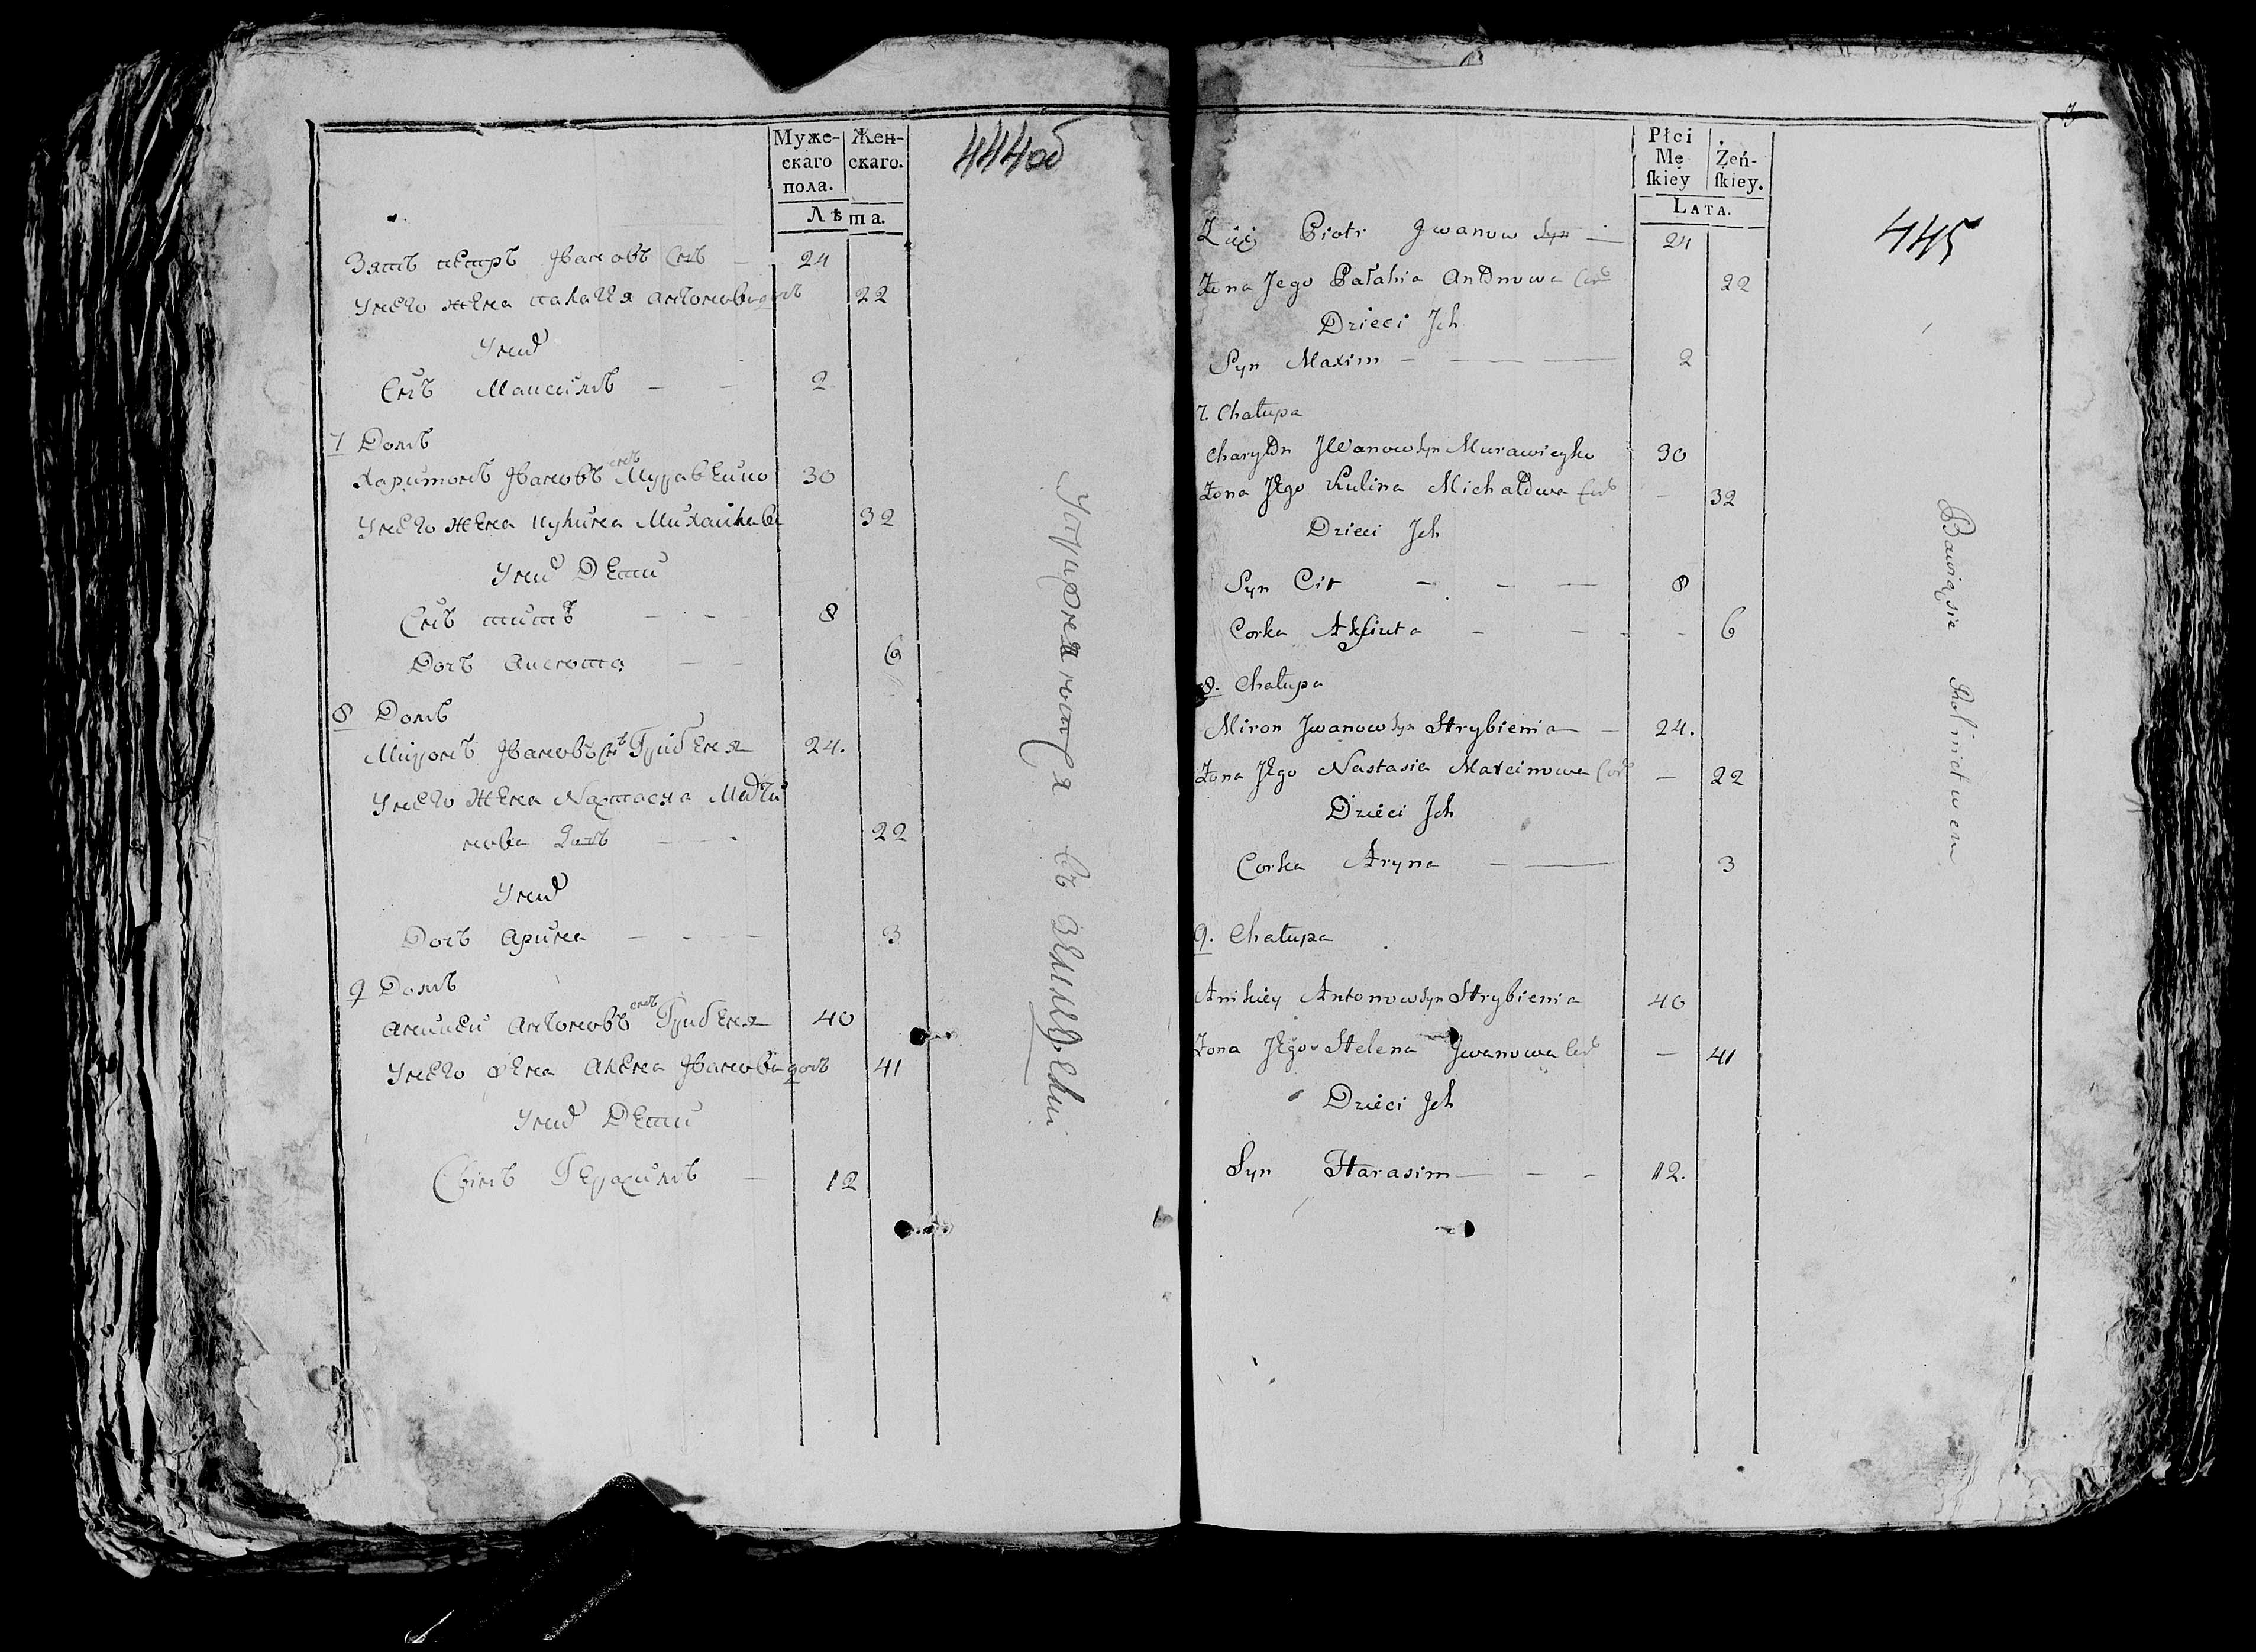 444об
Муже-
скаго
пола.
Жен-
скаго.
Лѣта.
Зять петръ Ивановъ снъ — 24
Унего жена палагія антонова дочь 22
Унихъ
Снъ Максимъ — — 2
7 Домъ
Харитонъ Ивановъ снъ Муравейко 30
Унего жена кулина Михайлова 32
Унихъ Дети
Снъ титъ — — — 8
Дочь Аксюта — — 6
8 Домъ
Миронъ Ивановъ снъ 24.
Унего жена Настасия
нова дочь — — 22
Унихъ
Дочь Арина — — — 3
9 Домъ
Аникей Антоновъ снъ 40
Унего жена Алена Иванова дочь 41
Унихъ Дети
Сынъ Герасимъ — 12
445
Płci
Mę
ſkiey
Żeń-
ſkiey.
LATA.
Zięć Piotr Jwanow Syn — 24
Żona Jego Pałahia Antonowa 22
Dzieci Jch
Syn Maxim — — — 2
7. Chałupa
Charyton JWanow Syn Murawieyko 30
Żona Jego Kulina Michałowa — 32
Dzieci Jch
Syn Cit — — — 8
Corka Akſiuta — — — 6
8. Chałupa
Miron Jwanow Syn Hrybienia — 24.
Żona Jego Nastasia Marcinowa — 22
Dzieci Jch
Corka Aryna — — 3
9. Chałupa
Anikiey Antonow Syn Hrybienia 40
Żona Jego Helena Jwanowa — 41
Dzieci Jch
Syn Harasim — — — 12.
Bawiąsie Rolnictwem